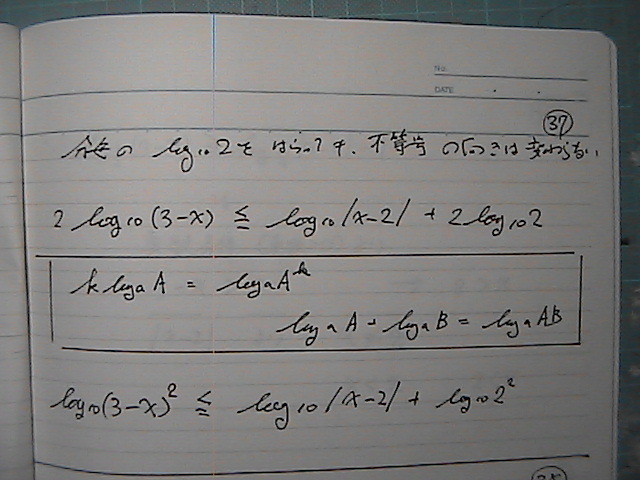 No.
DATE
37
分母の log₁₀2をはらっても、不等号の向きは変わらない
2 log₁₀(3-x) ≦ log₁₀|x-2| + 2 log₁₀2
k logₐA = logₐAᵏ
logₐA + logₐB = logₐAB
log₁₀(3-x)² ≦ log₁₀|x-2| + log₁₀2²